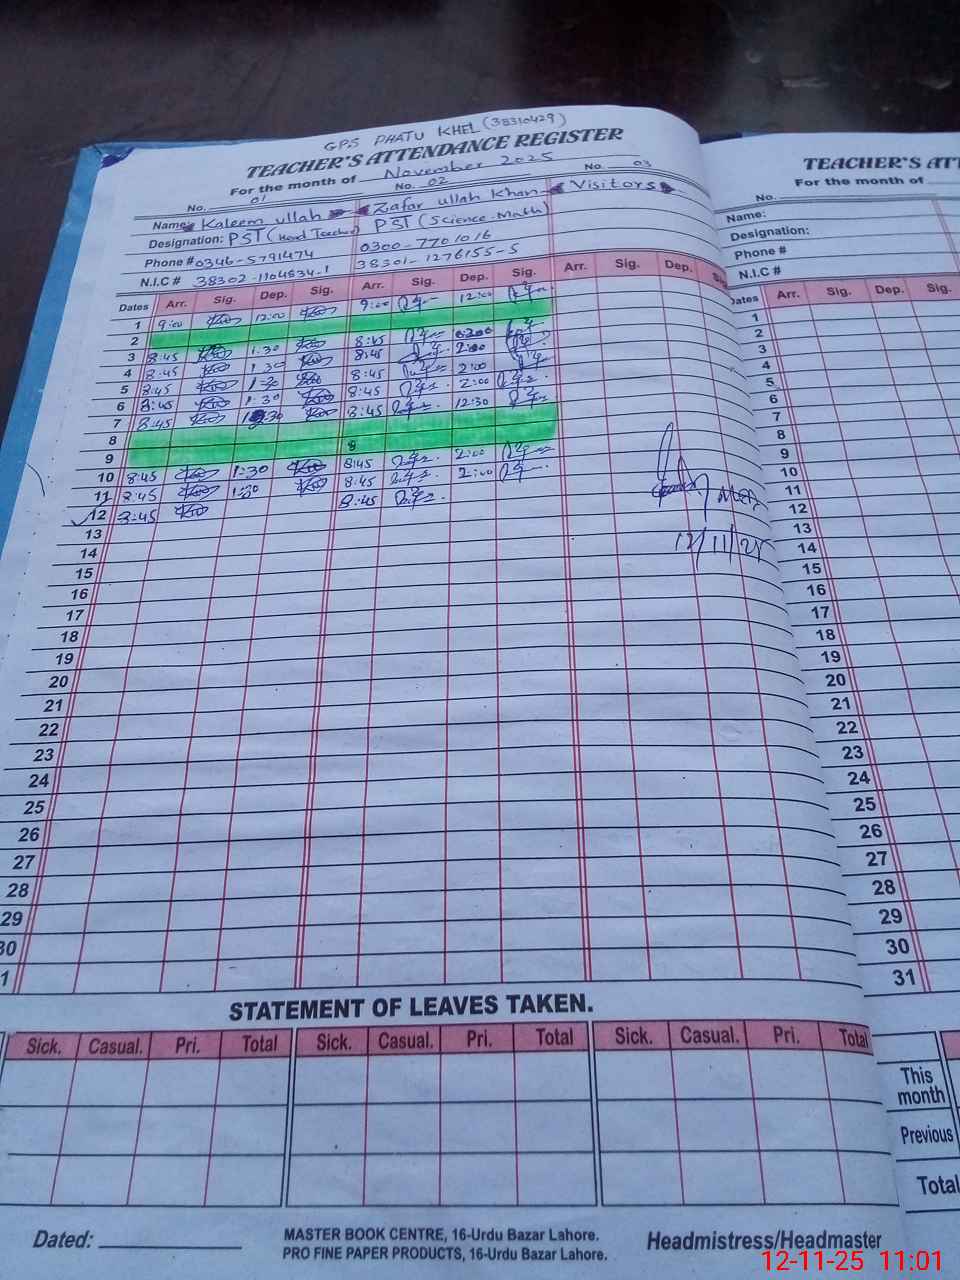 GPS PHATU KHEL (38310429)
TEACHER'S ATTENDANCE REGISTER
For the month of November 2025
No. 01 No. 02 No. 03
Name: Kaleem ullah Zafar ullah Khan Visitors
Designation: PST (Head Teacher) PST (Science-Math)
Phone # 0346-5791474 0300-7701016
N.I.C # 38302-1104834-1 38301-1276155-5
Dates Arr. Sig. Dep. Sig. Arr. Sig. Dep. Sig. Arr. Sig. Dep. Sig.
1 9:00 12:00 9:00 12:00
2
3 8:45 1:30 8:45
4 8:45 1:30 8:45 2:00
5 8:45 1:30 8:45 2:00
6 8:45 1:30 8:45 2:00
7 8:45 8:45 12:30
8
9 8
10 8:45 1:30 8:45 2:00
11 8:45 1:30 8:45 2:00
12 8:45 8:45
13
14
15
16
17
18
19
20
21
22
23
24
25
26
27
28
29
30
1
12/11/25
STATEMENT OF LEAVES TAKEN.
Sick. Casual. Pri. Total Sick. Casual. Pri. Total Sick. Casual. Pri. Total
Dated:
MASTER BOOK CENTRE, 16-Urdu Bazar Lahore.
PRO FINE PAPER PRODUCTS, 16-Urdu Bazar Lahore.
Headmistress/Headmaster
TEACHER'S ATT
For the month of
No.
Name:
Designation:
Phone #
N.I.C #
Dates Arr. Sig. Dep. Sig.
1
2
3
4
5
6
7
8
9
10
11
12
13
14
15
16
17
18
19
20
21
22
23
24
25
26
27
28
29
30
31
This month
Previous
Total
12-11-25 11:01